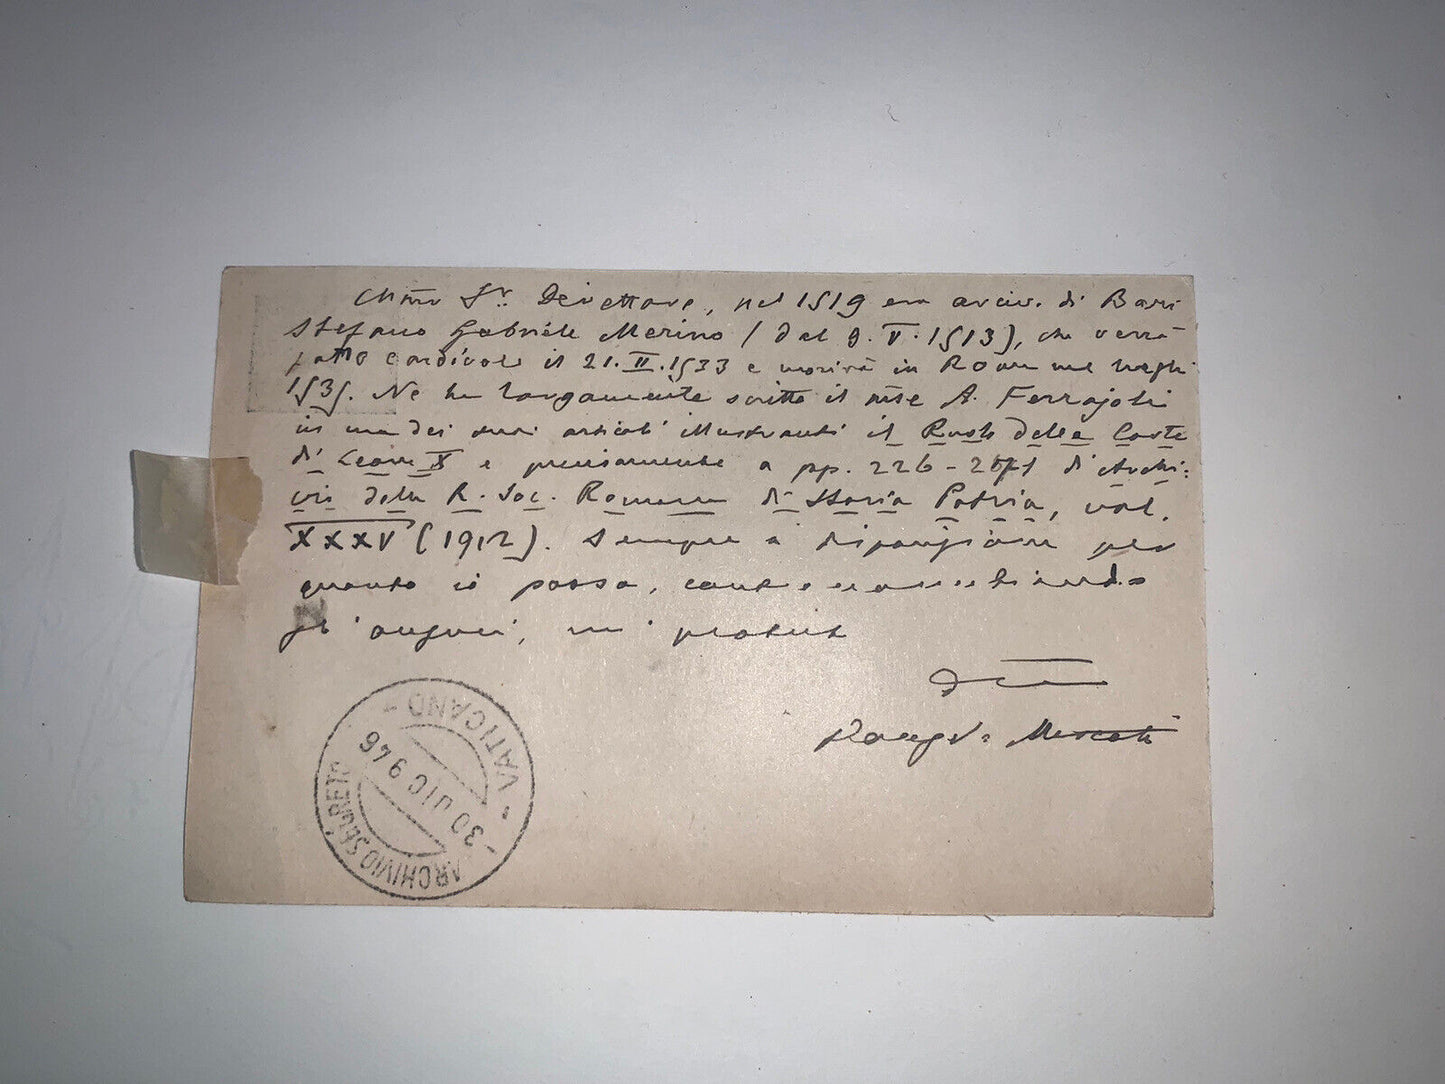 Chmo Sr. Direttore, nel 1519 era arciv. di Bari
Stefano Gabriele Merino (dal 9.V.1513), che verrà
fatto cardinale il 21.II.1533 e morirà in Roma nel luglio
1535. Ne ha largamente scritto il mse A. Ferrajoli
in uno dei suoi articoli illustranti il Ruolo della Corte
di Leone X e precisamente a pp. 226-271 di Archi:
vio della R. Soc. Romana di Storia Patria, vol.
XXXV (1912). Sempre a disposizione per
quanto io possa, contraccambiando
gli auguri, mi protesto
Mercati
ARCHIVIO SEGRETO - VATICANO -
- 30 DIC 946